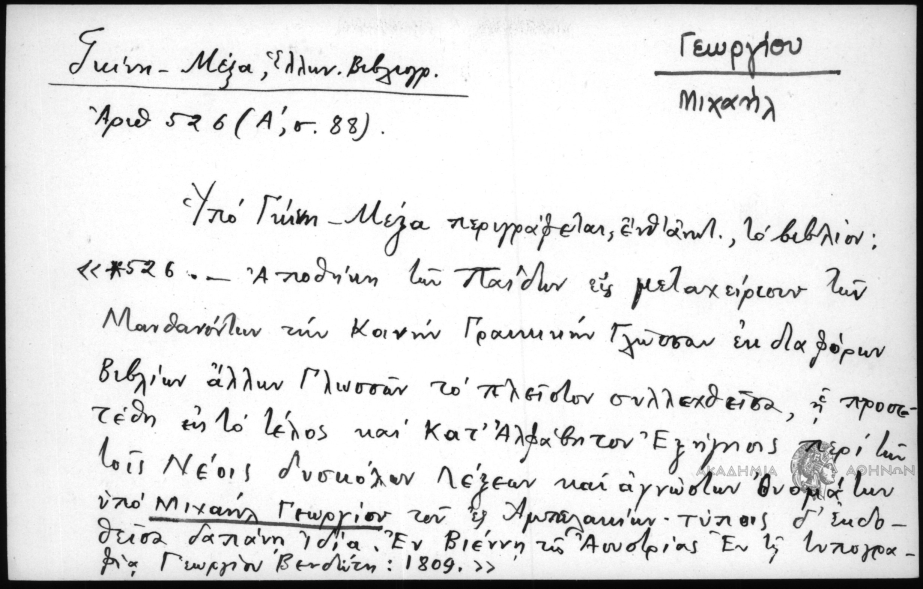 Γκίνη - Μέξα, Ἑλλην. Βιβλιογρ.
Γεωργίου
Μιχαήλ
Ἀριθ 526 (Α', σ. 88).
Ὑπό Γκίνη - Μέξα περιγράφεται, ἐνθ' ἀνωτ., τό βιβλίον:
«*526. — Ἀποθήκη τῶν Παίδων εἰς μεταχείρισιν τῶν
Μανθανόντων τήν Κοινήν Γραικικήν Γλῶσσαν ἐκ διαφόρων
Βιβλίων ἄλλων Γλωσσῶν τό πλεῖστον συλλεχθεῖσα, ᾗ προσε-
τέθη εἰς τό τέλος καί Κατ' Ἀλφάβητον Ἐξήγησις περί τῶν
τοῖς Νέοις δυσκόλων Λέξεων καί ἀγνώστων Ὀνομάτων
ΑΚΑΔΗΜΙΑ ΑΘΗΝΩΝ
ὑπό Μιχαήλ Γεωργίου τοῦ ἐξ Ἀμπελακίων· τύποις δ' ἐκδο-
θεῖσα δαπάνῃ ἰδίᾳ. Ἐν Βιέννῃ τῆς Ἀουστρίας Ἐν τῇ τυπογρα-
φίᾳ Γεωργίου Βενδώτη: 1809.»